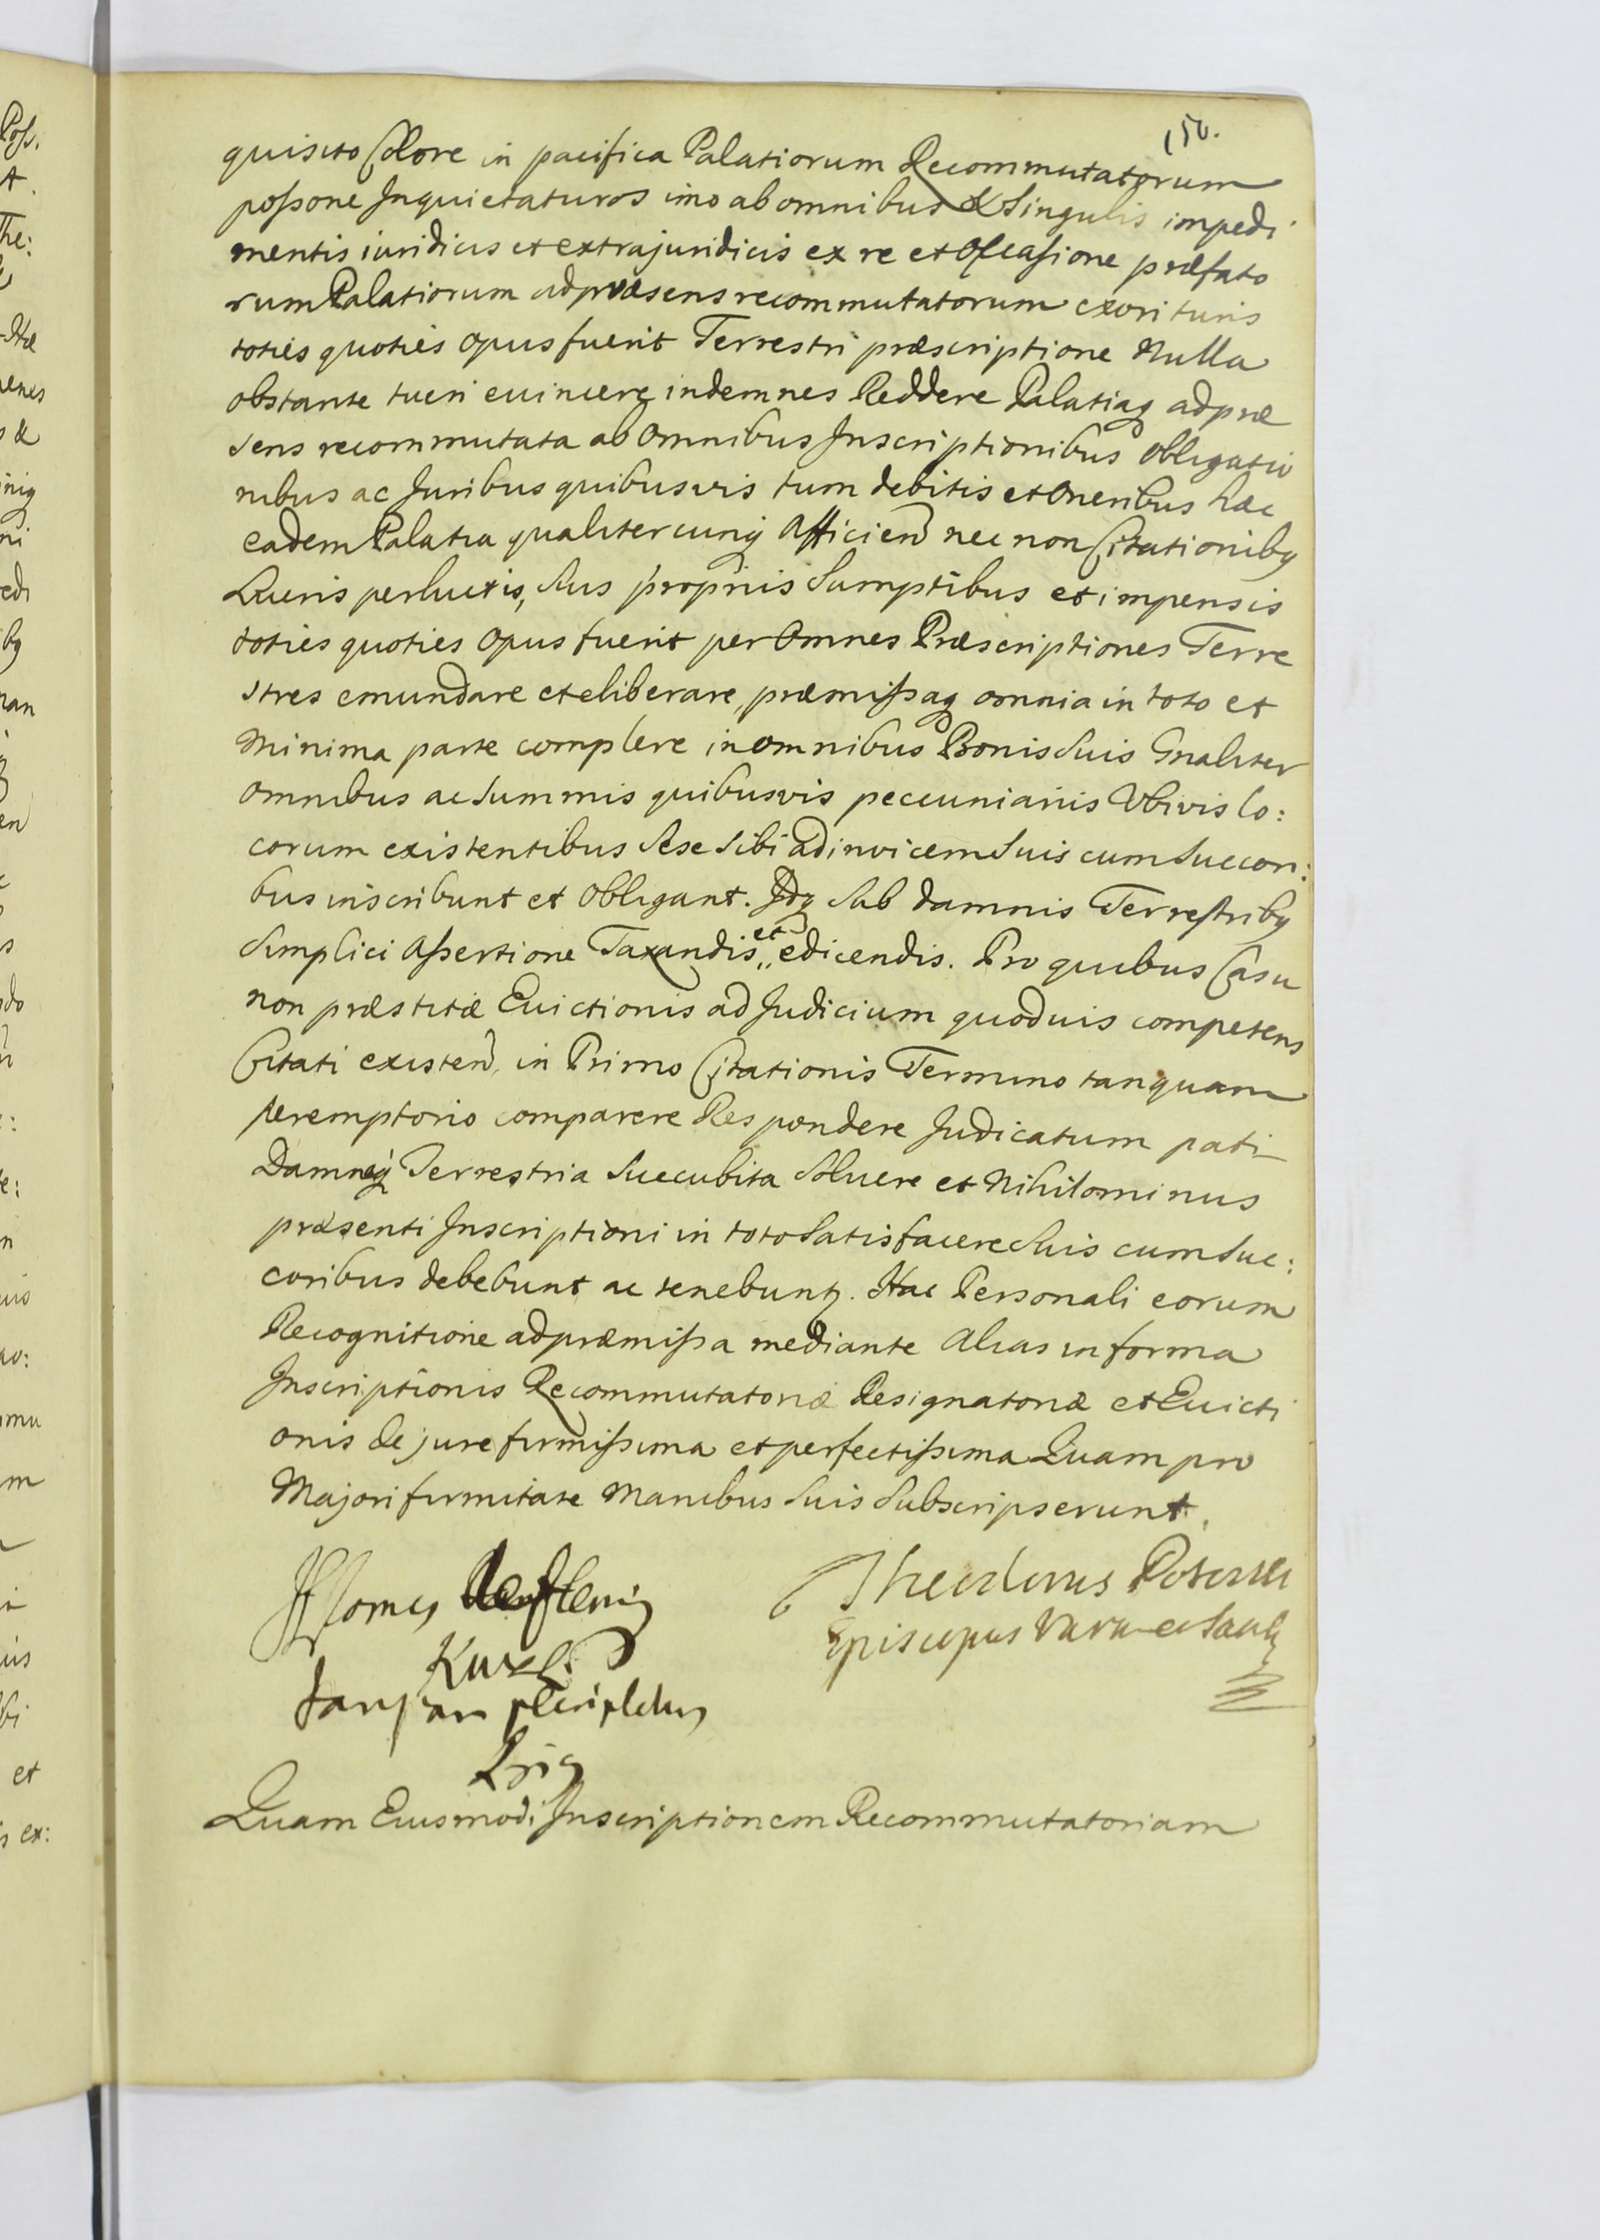 150.
quisito Colore in pacifica Palatiorum Recommutatorum
poßone Inquietaturos imo ab omnibus & Singulis impedi
mentis iuridicis et extrajuridicis ex re et Occasione præfato
rum Palatiorum ad præsens recommutatorum exorituris
toties quoties opus fuerit Terrestri præscriptione Nulla
obstante tueri evincere indemnes Reddere Palatiaq ad præ
sens recommutata ab Omnibus Inscriptionibus Obligatio
nibus ac Juribus quibusvis tum debitis et Oneribus hæc
eadem Palatia qualitercunq Afficien nec non Citationibq
Lucris perlucris, suis propriis Sumptibus et impensis
toties quoties Opus fuerit per Omnes Præscriptiones Terre
stres emundare et eliberare, præmißaq omnia in toto et
Minima parte complere in omnibus Bonis Suis Gnaliter
Omnibus ac Summis quibusvis peccuniariis Ubivis lo:
corum existentibus Sese Sibi adinvicem Suis cum Succori:
bus inscribunt et Obligant. Idq Sub damnis Terrestribq
Simplici Aßertione Taxandis et edicendis. Pro quibus Casu
non præstitæ Evictionis ad Judicium quodvis competens
Citati existen, in Primo Citationis Termino tanquam
peremptorio comparere Respondere Judicatum pati
Damnaq Terrestria Succubita Soluere et Nihilominus
præsenti Inscriptioni in toto Satisfacere Suis cum Suc:
coribus debebunt ac tenebuntr. Hac Personali eorum
Recognitione ad præmißa mediante Alias in forma
Inscriptionis Recommutatoriæ Resignatoriæ et Evicti
onis de jure firmißima et perfectißima Quam pro
Majori firmitate Manibus Suis Subscripserunt.
Theodorus Potocki
Episcopus Varmiensis
Quam Eiusmodi Inscriptionem Recommutatoriam